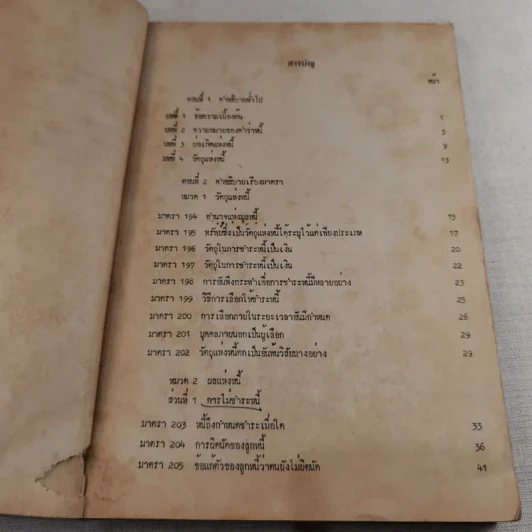 สารบัญ
หน้า
ตอนที่ 1 คำอธิบายทั่วไป
บทที่ 1 ข้อความเบื้องต้น 1
บทที่ 2 ความหมายของคำว่าหนี้ 3
บทที่ 3 บ่อเกิดแห่งหนี้ 9
บทที่ 4 วัตถุแห่งหนี้ 13
ตอนที่ 2 คำอธิบายเรียงมาตรา
หมวด 1 วัตถุแห่งหนี้
มาตรา 194 อำนาจแห่งมูลหนี้ 15
มาตรา 195 ทรัพย์ซึ่งเป็นวัตถุแห่งหนี้ได้ระบุไว้แต่เพียงประเภท 17
มาตรา 196 วัตถุในการชำระหนี้เป็นเงิน 20
มาตรา 197 วัตถุในการชำระหนี้เป็นเงิน 22
มาตรา 198 การอันพึงกระทำเพื่อการชำระหนี้มีหลายอย่าง 23
มาตรา 199 วิธีการเลือกให้ชำระหนี้ 25
มาตรา 200 การเลือกภายในระยะเวลาอันมีกำหนด 26
มาตรา 201 บุคคลภายนอกเป็นผู้เลือก 29
มาตรา 202 วัตถุแห่งหนี้ตกเป็นอันพ้นวิสัยบางอย่าง 29
หมวด 2 ผลแห่งหนี้
ส่วนที่ 1 การไม่ชำระหนี้
มาตรา 203 หนี้ถึงกำหนดชำระเมื่อใด 33
มาตรา 204 การผิดนัดของลูกหนี้ 36
มาตรา 205 ข้อแก้ตัวของลูกหนี้ว่าตนยังไม่ผิดนัด 41